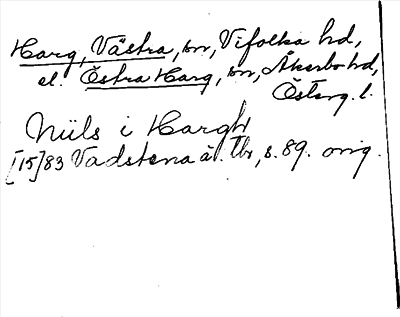 Harg, Västra, sn, Vifolka hd,
el. Östra Harg, sn, Åkerbo hd,
Österg. l.
Niils i Hargh
[15]83 Vadstena ät. Tb, s. 89. orig.